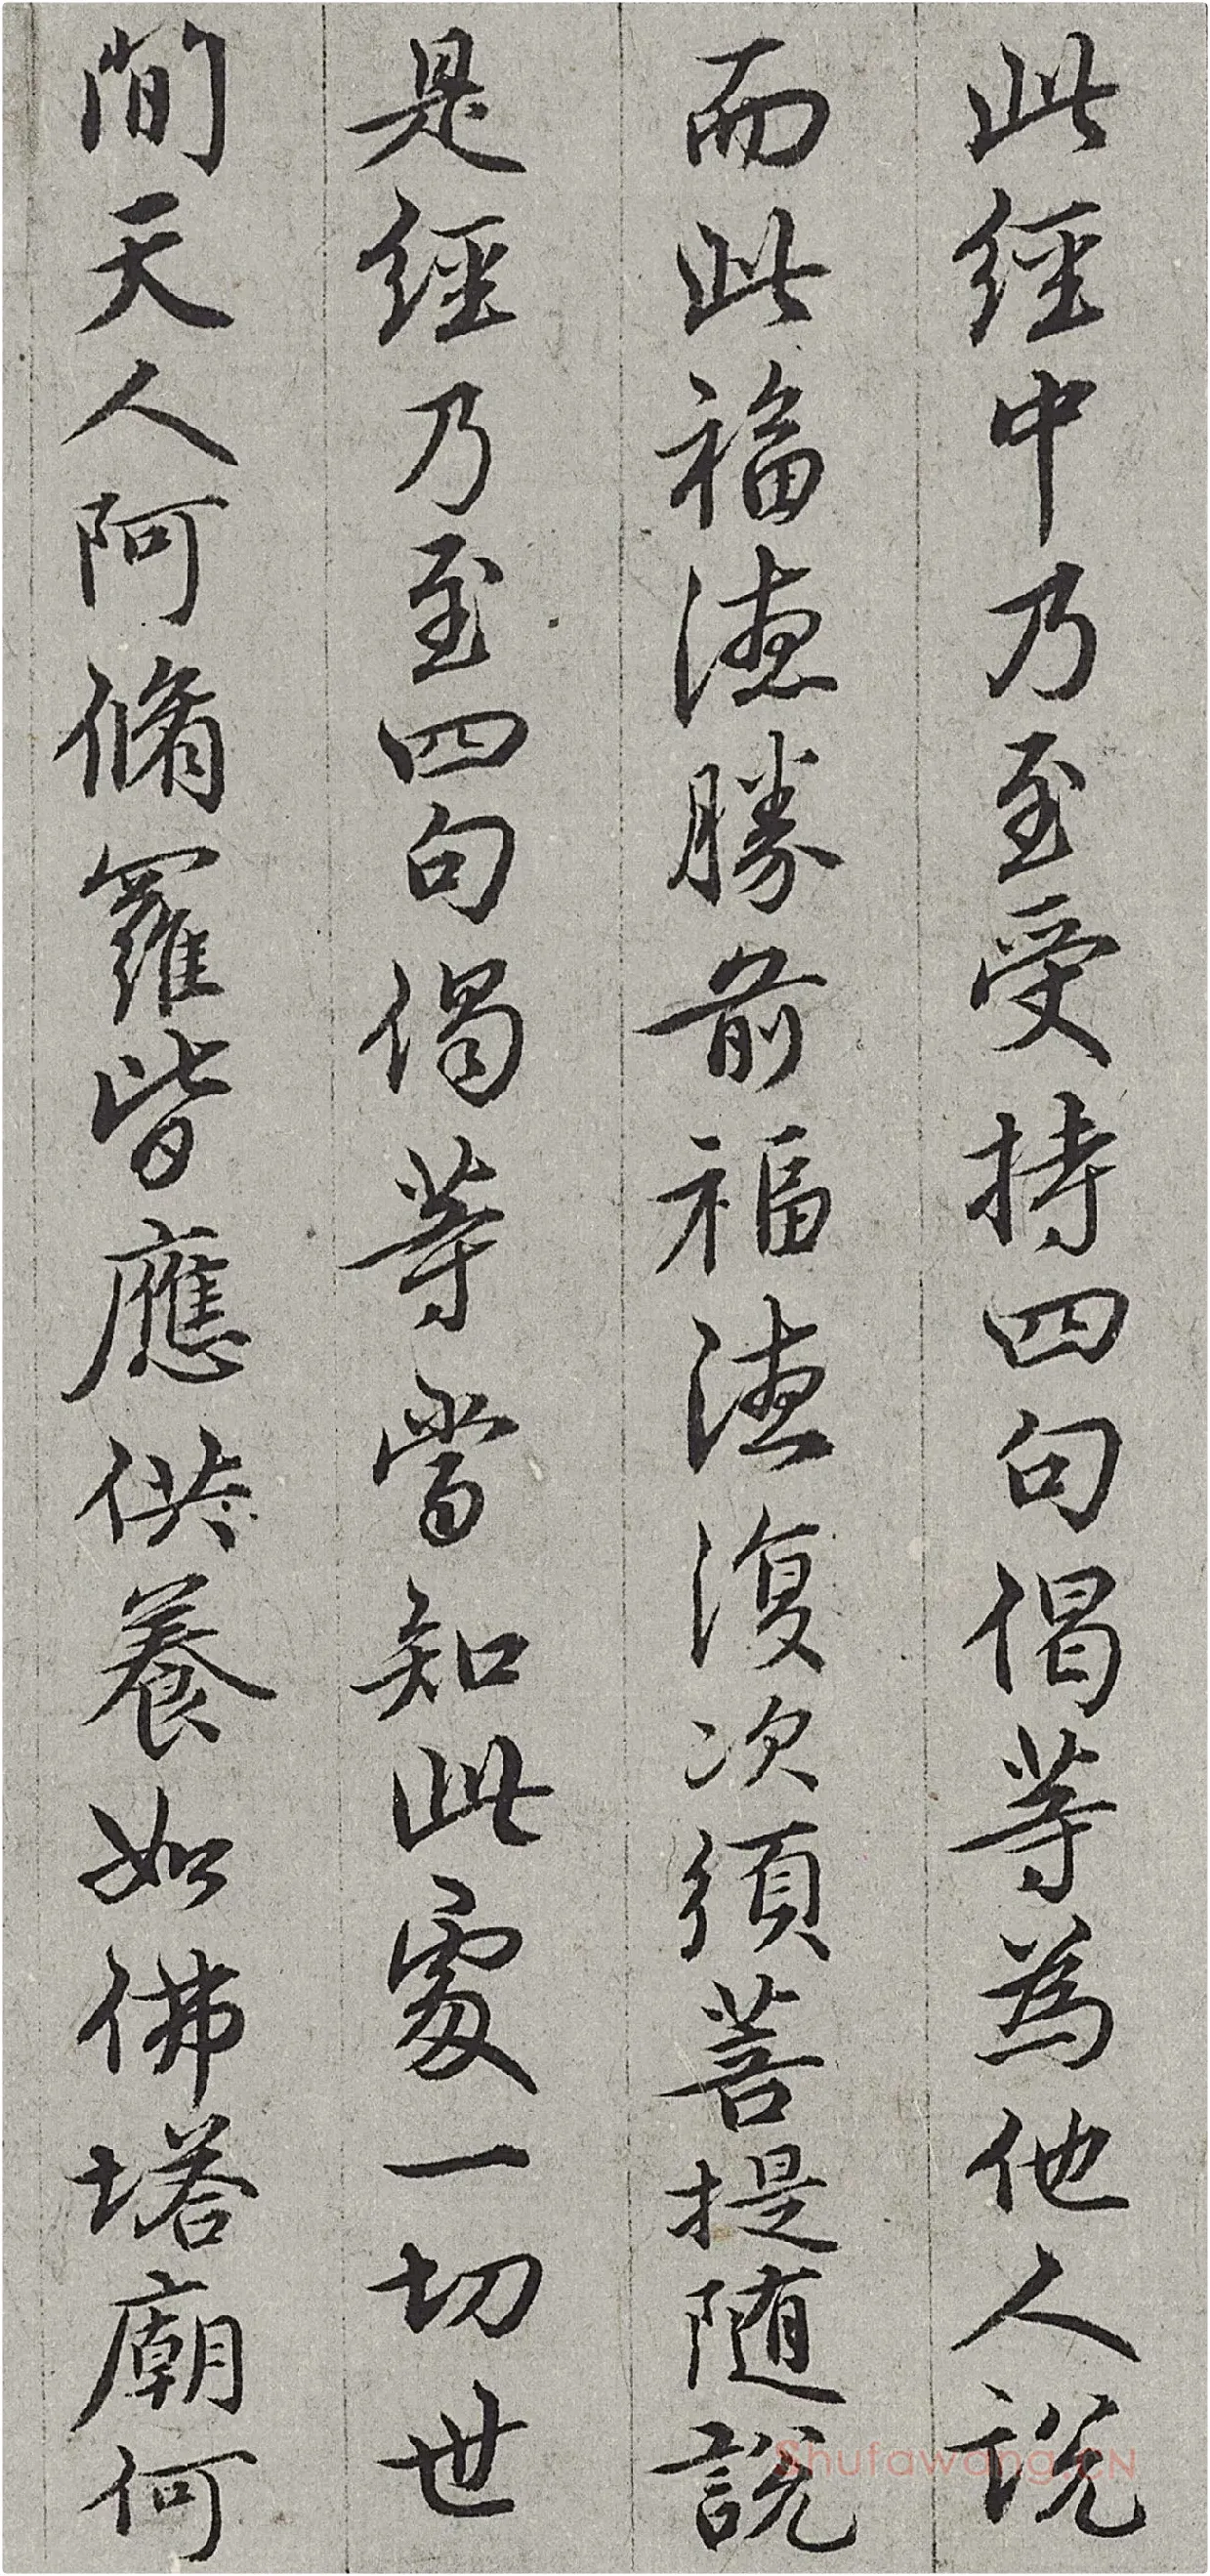 此經中乃至受持四句偈等為他人說
而此福德勝前福德復次須菩提随說
是經乃至四句偈等當知此處一切世
間天人阿脩羅皆應供養如佛塔廟何
Shufawang.CN